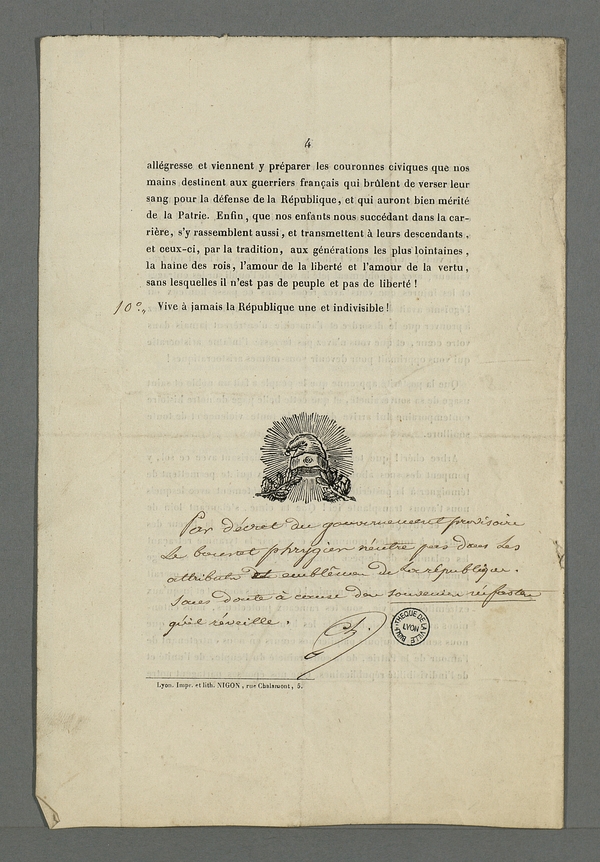 4
allégresse et viennent y préparer les couronnes civiques que nos
mains destinent aux guerriers français qui brûlent de verser leur
sang pour la défense de la République, et qui auront bien mérité
de la Patrie. Enfin, que nos enfants nous succédant dans la car-
rière, s'y rassemblent aussi, et transmettent à leurs descendants,
et ceux-ci, par la tradition, aux générations les plus lointaines,
la haine des rois, l'amour de la liberté et l'amour de la vertu,
sans lesquelles il n'est pas de peuple et pas de liberté !
10°„ Vive à jamais la République une et indivisible !
Par décret du gouvernement provisoire
Le bonnet phrygien n'entre pas dans les
attributs et emblêmes de la république.
Sans doute à cause du souvenir néfaste
qu'il réveille.
Ch.
BIBLIOTHEQUE DE LA VILLE
LYON
Lyon. Impr. et lith. NIGON, rue Chalamont, 5.